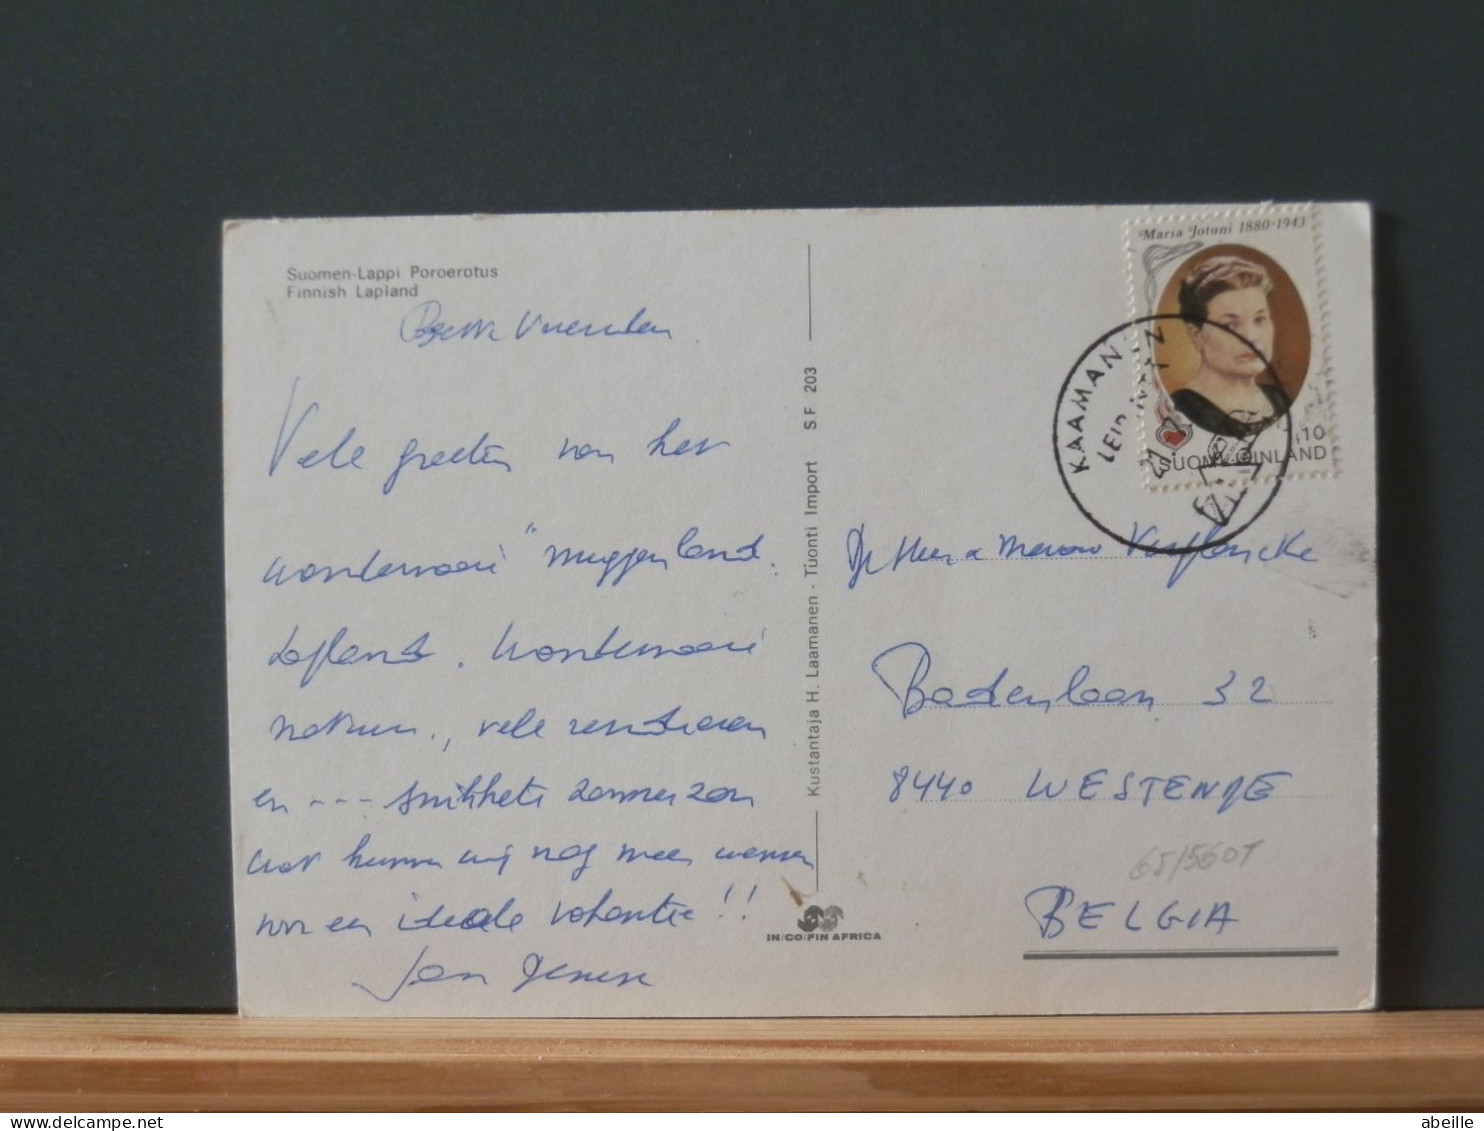 Suomen-Lappi Poroerotus
Finnish Lapland
Beste Vrienden
Vele groeten van het
wondermooi "muggenland.
Lapland. Wondermooie
natuur, vele rendieren
en --- snikhete zomerzon
wat kunnen wij nog meer wensen
voor een ideale vakantie!!
Jan
Kustantaja H. Laamanen - Tuonti Import S.F 203
IN/CO/FIN AFRICA
Maria Jotuni 1880-1943
1,10
SUOMI FINLAND
KAAMANEN
De Heer & Mevrouw
Badenlaan 32
8440 WESTENDE
65/560T
BELGIA
abeille